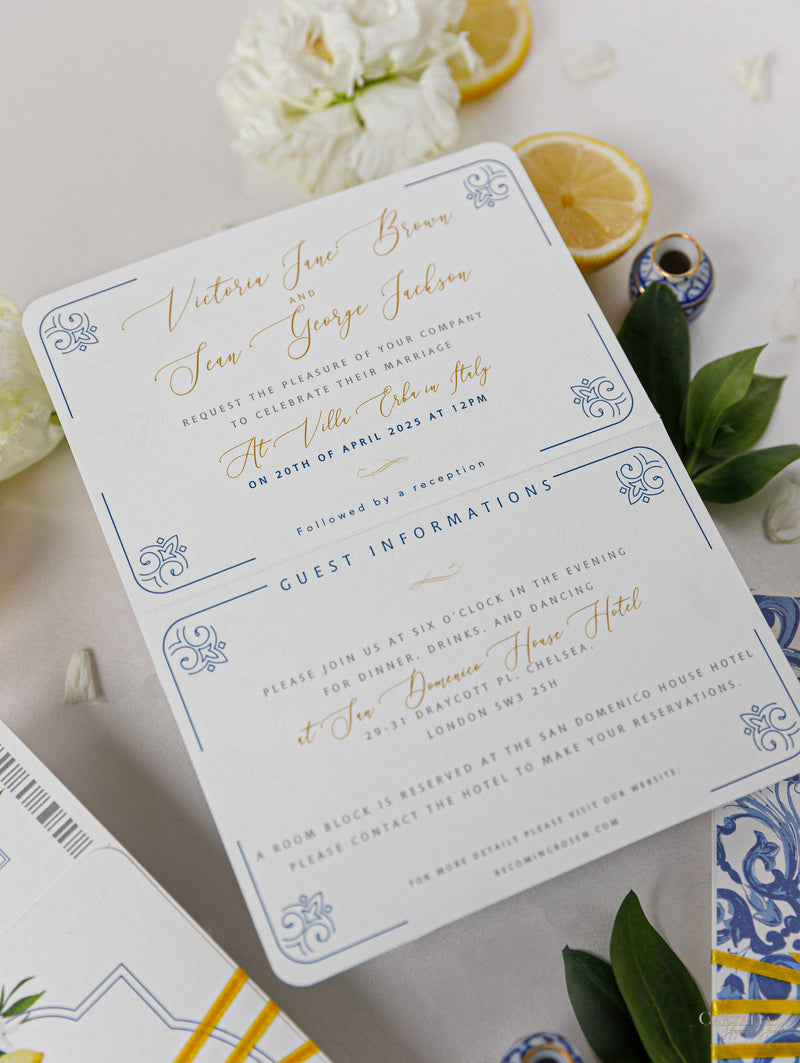 Victoria Jane Brown
AND
Sean George Jackson
REQUEST THE PLEASURE OF YOUR COMPANY
TO CELEBRATE THEIR MARRIAGE
At Villa Erba in Italy
ON 20TH OF APRIL 2025 AT 12PM
Followed by a reception
GUEST INFORMATIONS
PLEASE JOIN US AT SIX O'CLOCK IN THE EVENING
FOR DINNER, DRINKS, AND DANCING
at San Domenico House Hotel
29-31 DRAYCOTT PL, CHELSEA,
LONDON SW3 2SH
A ROOM BLOCK IS RESERVED AT THE SAN DOMENICO HOUSE HOTEL
PLEASE CONTACT THE HOTEL TO MAKE YOUR RESERVATIONS.
FOR MORE DETAILS PLEASE VISIT OUR WEBSITE:
BECOMINGROSEN.COM